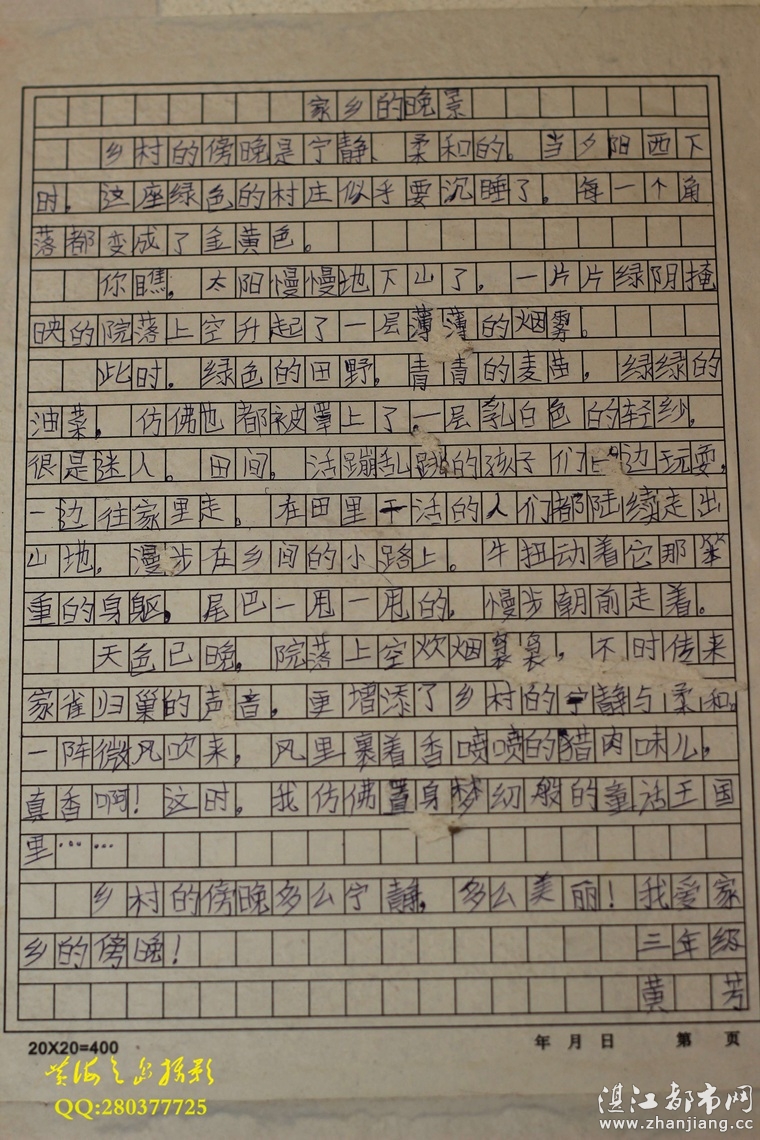 家乡的晚景
乡村的傍晚是宁静、柔和的。当夕阳西下
时，这座绿色的村庄似乎要沉睡了。每一个角
落都变成了金黄色。
你瞧，太阳慢慢地下山了，一片片绿阴掩
映的院落上空升起了一层薄薄的烟雾。
此时，绿色的田野，青青的麦苗，绿绿的
油菜，仿佛也都被罩上了一层乳白色的轻纱，
很是迷人。田间，活蹦乱跳的孩子们一边玩耍，
一边往家里走。在田里干活的人们都陆续走出
山地，漫步在乡间的小路上。牛扭动着它那笨
重的身躯，尾巴一甩一甩的，慢步朝前走着。
天色已晚，院落上空炊烟袅袅，不时传来
家雀归巢的声音，更增添了乡村的宁静与柔和。
一阵微风吹来，风里裹着香喷喷的猎肉味儿，
真香啊！这时，我仿佛置身梦幻般的童话王国
里……
乡村的傍晚多么宁静，多么美丽！我爱家
乡的傍晚！ 三年级
黄 芳
20X20=400 年 月 日 第 页
QQ:280377725
湛江都市网
www.zhanjiang.cc